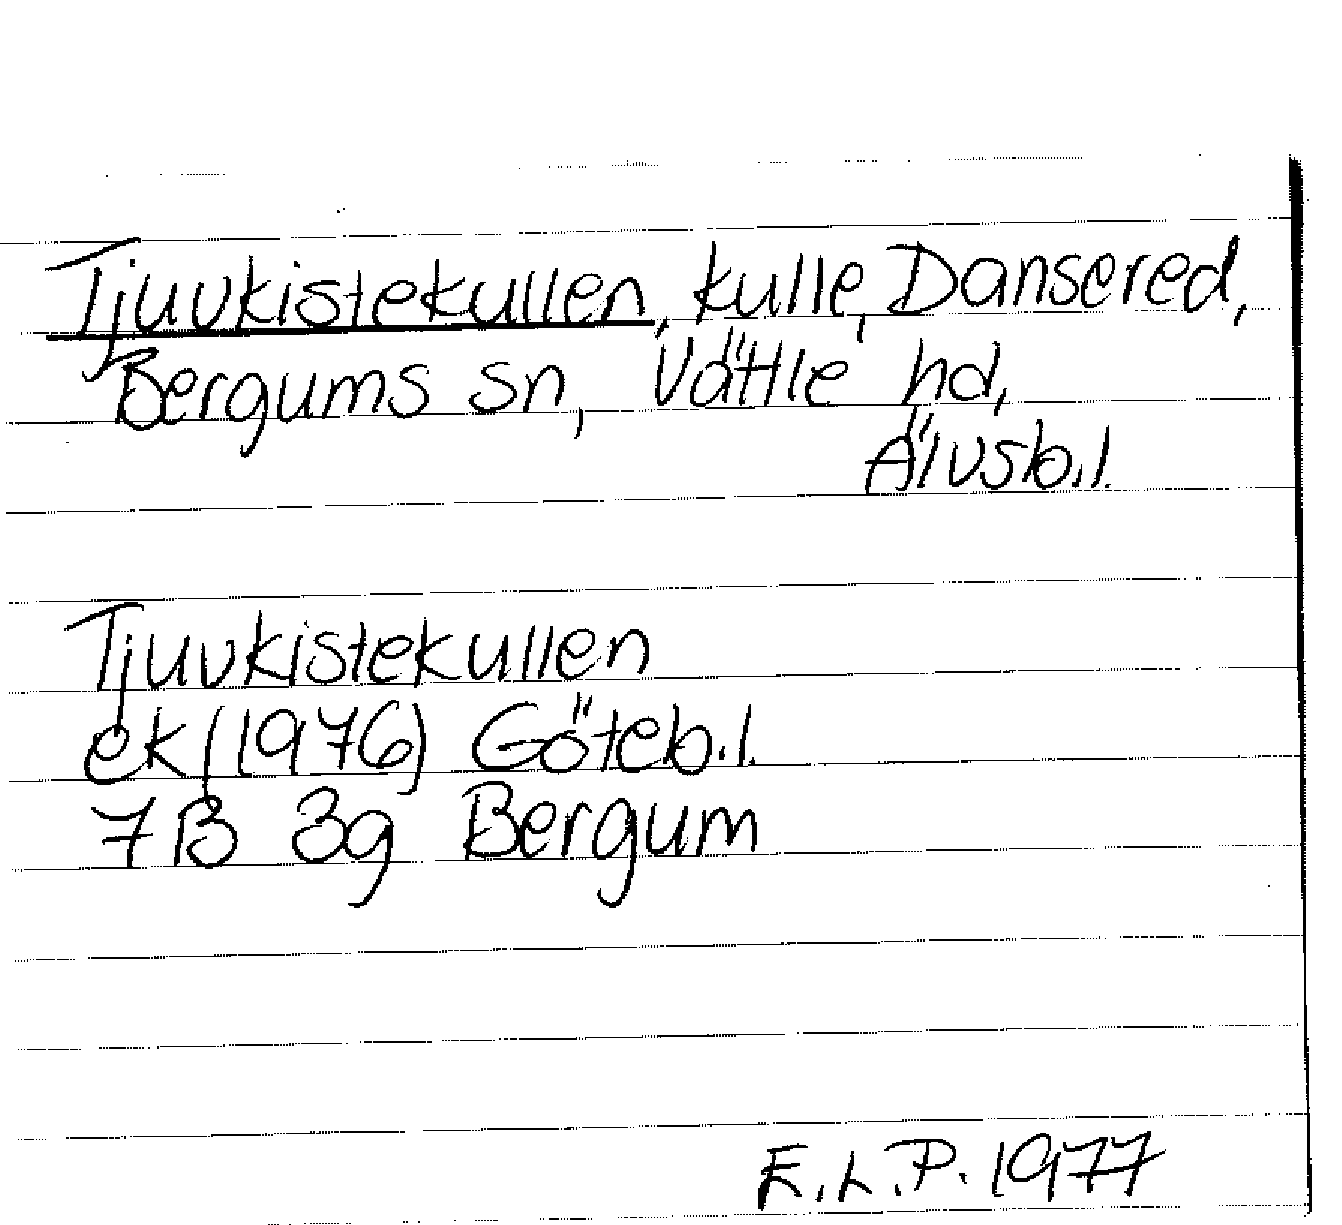 Tjuvkistekullen, kulle, Dansered,
Bergums sn, Vättle hd,
Älvsb.l.
Tjuvkistekullen
ek (1976) Göteb.l.
7B 3g Bergum
E.L.P. 1977